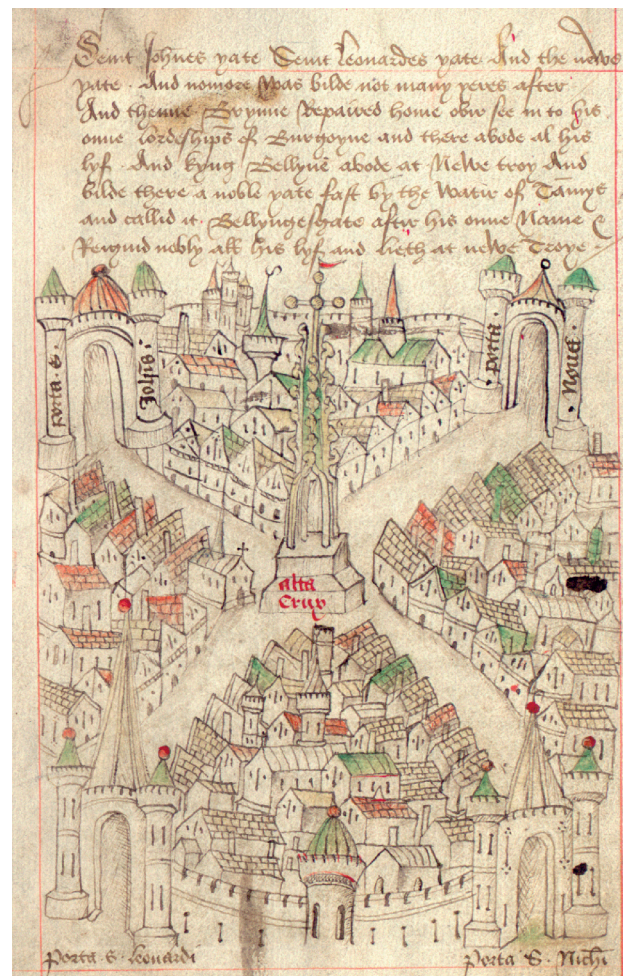 Seint Johnes yate Seint Leonardes yate And the newe
yate · And nomore was bilde not many yeres after
And thenne Brynne Repaired home ovir see in to his
onne lordeships of Burgoyne and there abode al his
lyf · And kyng Bellyne abode at Newe troy And
bilde there a noble yate fast by the watir of Tamys
and callid it Bellyngesgate aftir his onne Name &
Reignid nobly all his lyf and lieth at newe Troye ·
Porta · S ·
Johis ·
porta ·
Noua ·
alta
Crux
Porta · S · Leonardi
Porta S · Nichi